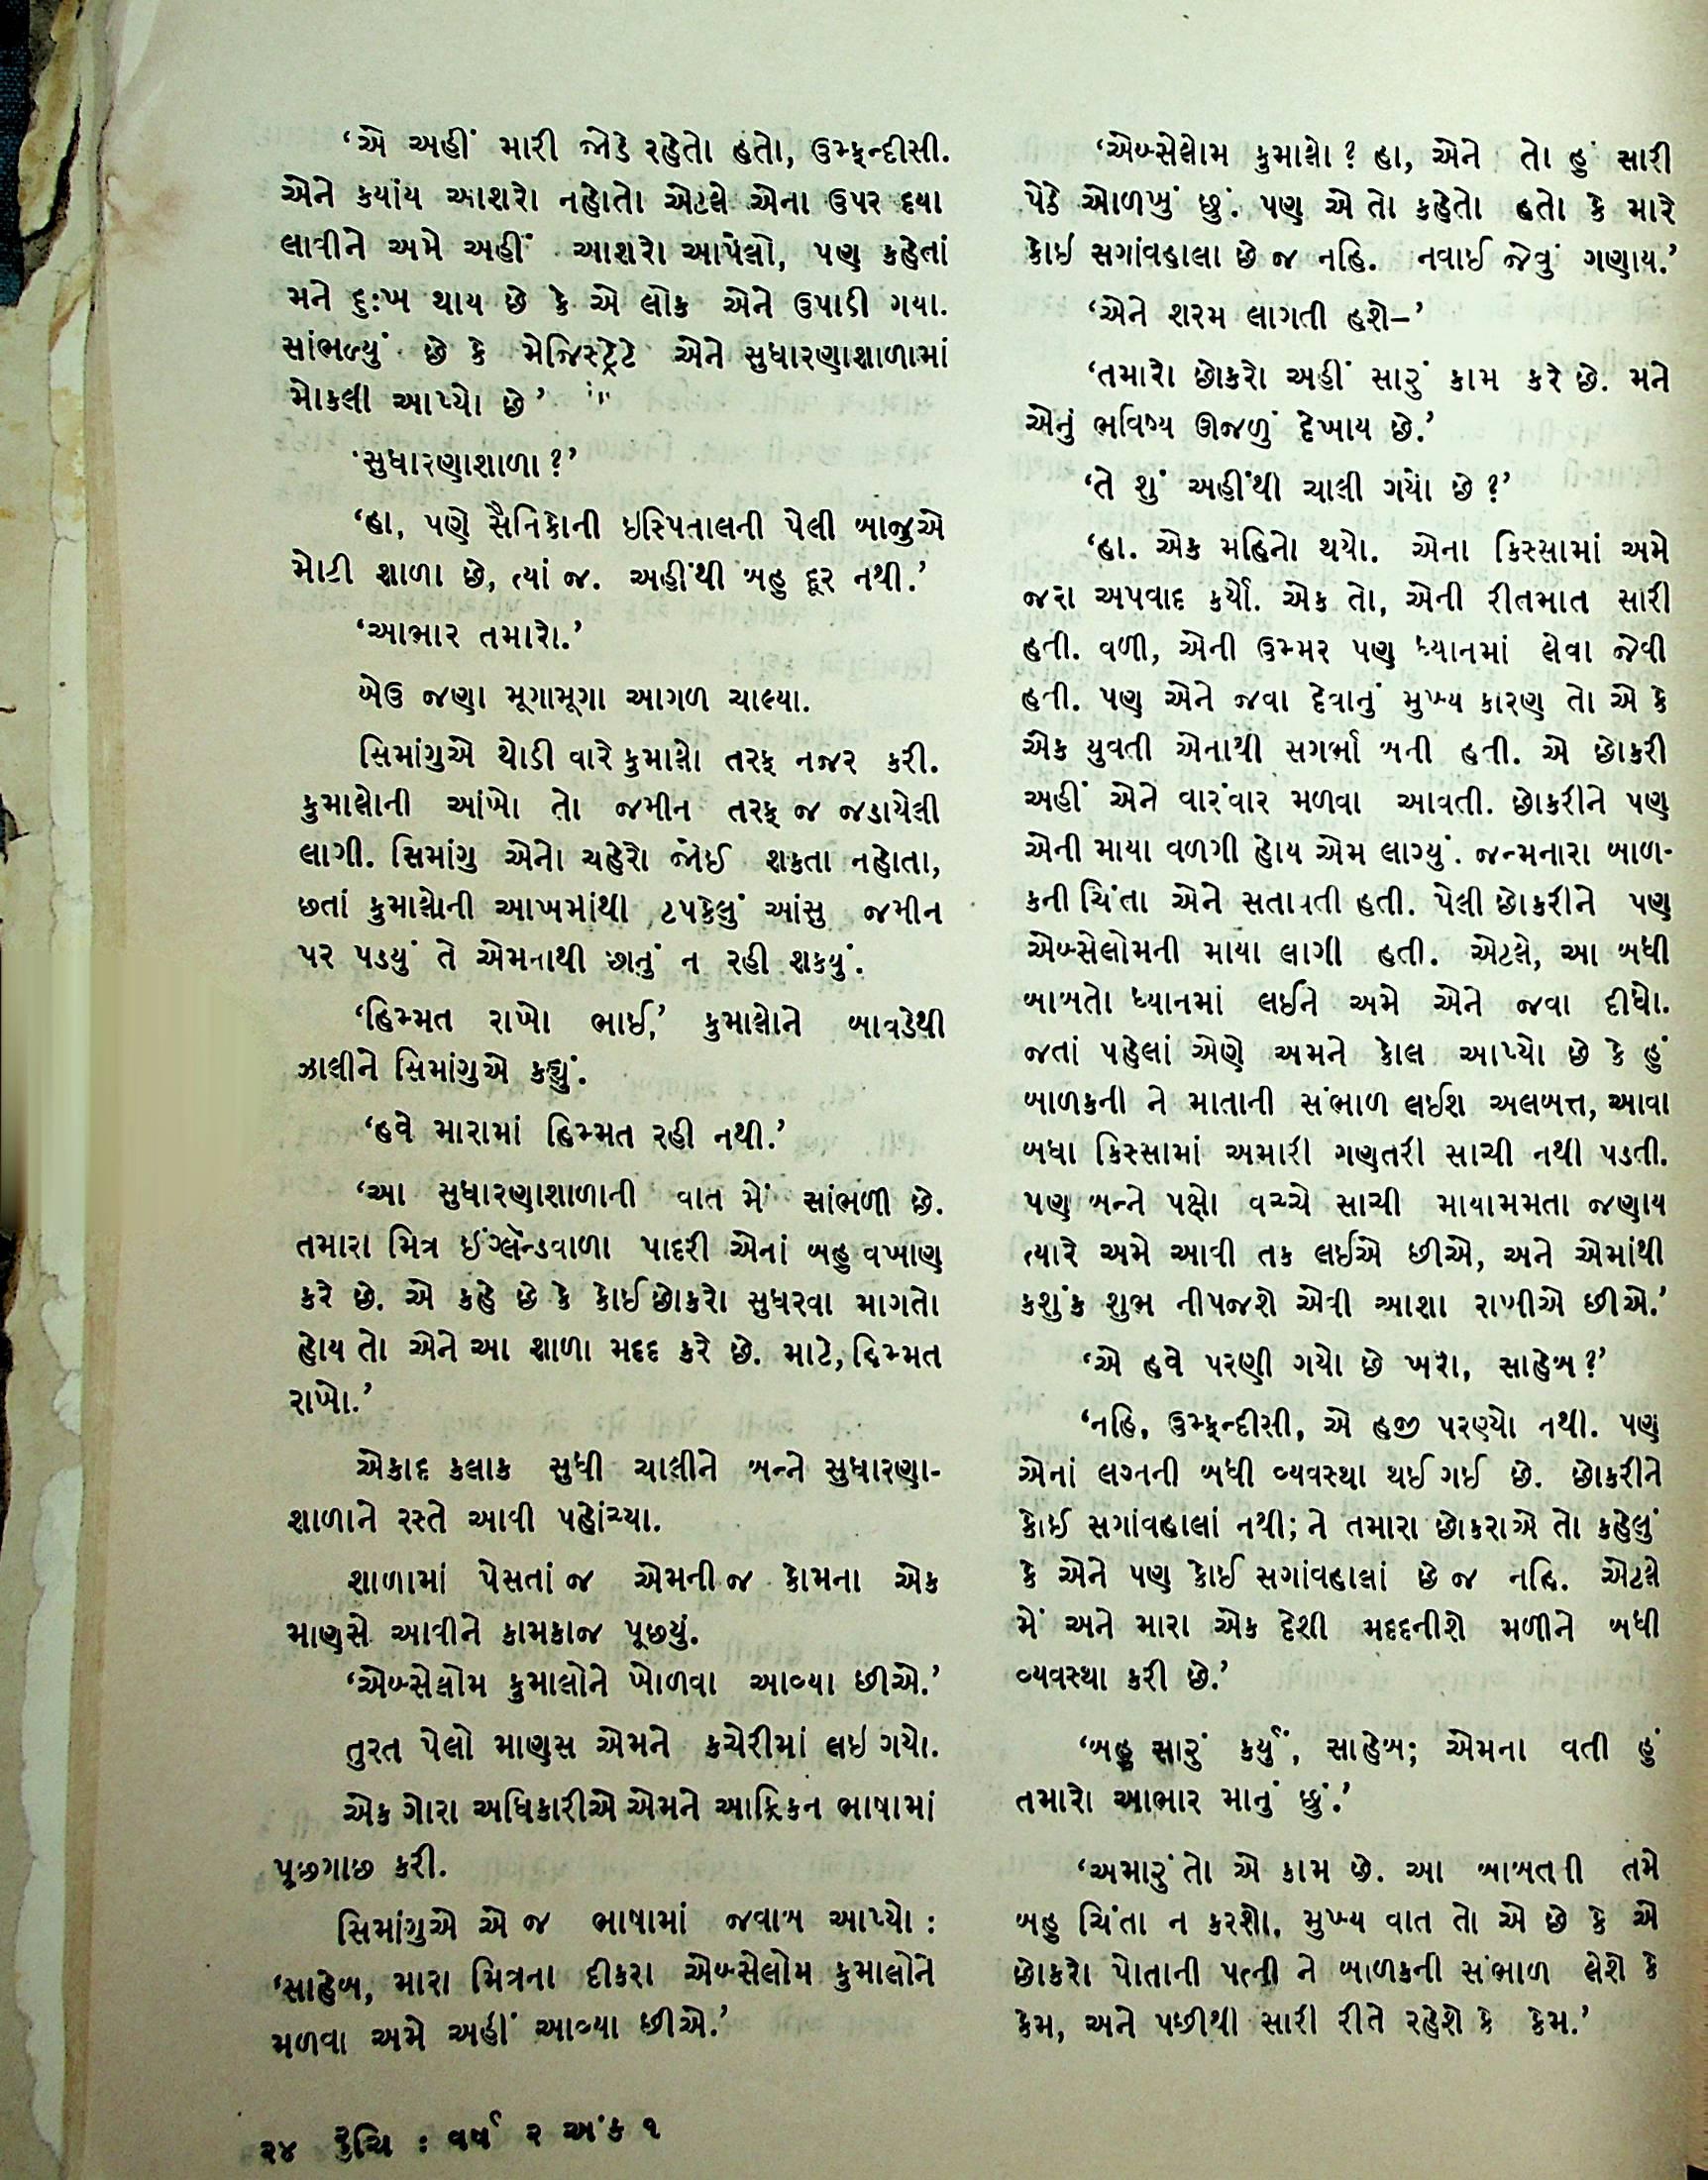 ‘એ અહીં મારી જોડે રહેતો હતો, ઉમ્ફન્દીસી.
એને કયાંય આશરો નહોતો એટલે એના ઉપર દયા
લાવીને અમે અહીં આશરો આપેલો, પણ કહેતાં
મને દુઃખ થાય છે કે એ લોક એને ઉપાડી ગયા.
સાંભળ્યું છે કે મેજિસ્ટ્રેટે એને સુધારણાશાળામાં
મોકલી આપ્યો છે’
‘સુધારણાશાળા?’
‘હા, પણે સૈનિકોની ઇસ્પિતાલની પેલી બાજુએ
મોટી શાળા છે, ત્યાં જ. અહીંથી બહુ દૂર નથી.’
‘આભાર તમારો.’
બેઉ જણા મૂગામૂગા આગળ ચાલ્યા.
સિમાંગુએ થોડી વારે કુમાલો તરફ નજર કરી.
કુમાલોની આંખો તો જમીન તરફ જ જડાયેલી
લાગી. સિમાંગુ એનો ચહેરો જોઈ શકતા નહોતા,
છતાં કુમાલોની આખમાંથી ટપકેલું આંસુ જમીન
પર પડયું તે એમનાથી છાનું ન રહી શકયું.
‘હિમ્મત રાખો ભાઈ,’ કુમાલોને બાવડેથી
ઝાલીને સિમાંગુએ કહ્યું.
‘હવે મારામાં હિમ્મત રહી નથી.’
‘આ સુધારણાશાળાની વાત મેં સાંભળી છે.
તમારા મિત્ર ઈંગ્લૅન્ડવાળા પાદરી એનાં બહુ વખાણ
કરે છે. એ કહે છે કે કોઈ છોકરો સુધરવા માગતો
હોય તો એને આ શાળા મદદ કરે છે. માટે, હિમ્મત
રાખો.’
એકાદ કલાક સુધી ચાલીને બન્ને સુધારણા-
શાળાને રસ્તે આવી પહોંચ્યા.
શાળામાં પેસતાં જ એમની જ કોમના એક
માણસે આવીને કામકાજ પૂછયું.
‘એબ્સેલોમ કુમાલોને ખોળવા આવ્યા છીએ.’
તુરત પેલો માણસ એમને કચેરીમાં લઇ ગયો.
એક ગોરા અધિકારીએ એમને આફ્રિકન ભાષામાં
પૂછગાછ કરી.
સિમાંગુએ એ જ ભાષામાં જવાબ આપ્યો :
‘સાહેબ, મારા મિત્રના દીકરા એબ્સેલોમ કુમાલોને
મળવા અમે અહીં આવ્યા છીએ.’
૨૪ રુચિ : વર્ષ ૨ અંક ૧
‘એબ્સેલોમ કુમાલો? હા, એને તો હું સારી
પેઠે ઓળખું છું. પણ એ તો કહેતો હતો કે મારે
કોઇ સગાંવહાલા છે જ નહિ. નવાઈ જેવું ગણાય.’
‘એને શરમ લાગતી હશે–’
‘તમારો છોકરો અહીં સારું કામ કરે છે. મને
એનું ભવિષ્ય ઊજળું દેખાય છે.’
‘તે શું અહીંથી ચાલી ગયો છે?’
‘હા. એક મહિનો થયો. એના કિસ્સામાં અમે
જરા અપવાદ કર્યો. એક તો, એની રીતભાત સારી
હતી. વળી, એની ઉમ્મર પણ ધ્યાનમાં લેવા જેવી
હતી. પણ એને જવા દેવાનું મુખ્ય કારણ તો એ કે
એક યુવતી એનાથી સગર્ભા બની હતી. એ છોકરી
અહીં એને વારંવાર મળવા આવતી. છોકરીને પણ
એની માયા વળગી હોય એમ લાગ્યું. જન્મનારા બાળ-
કની ચિંતા એને સતાવતી હતી. પેલી છોકરીને પણ
એબ્સેલોમની માયા લાગી હતી. એટલે, આ બધી
બાબતો ધ્યાનમાં લઈને અમે એને જવા દીધો.
જતાં પહેલાં એણે અમને કોલ આપ્યો છે કે હું
બાળકની ને માતાની સંભાળ લઈશ અલબત્ત, આવા
બધા કિસ્સામાં અમારી ગણતરી સાચી નથી પડતી.
પણ બન્ને પક્ષો વચ્ચે સાચી માયામમતા જણાય
ત્યારે અમે આવી તક લઈએ છીએ, અને એમાંથી
કશુંક શુભ નીપજશે એવી આશા રાખીએ છીએ.’
‘એ હવે પરણી ગયો છે ખરો, સાહેબ?’
‘નહિ, ઉમ્ફન્દીસી, એ હજી પરણ્યો નથી. પણ
એનાં લગ્નની બધી વ્યવસ્થા થઈ ગઈ છે. છોકરીને
કોઈ સગાંવહાલાં નથી; ને તમારા છોકરાએ તો કહેલું
કે એને પણ કોઈ સગાંવહાલાં છે જ નહિ. એટલે
મેં અને મારા એક દેશી મદદનીશે મળીને બધી
વ્યવસ્થા કરી છે.’
‘બહુ સારું કર્યું, સાહેબ; એમના વતી હું
તમારો આભાર માનું છું.’
‘અમારું તો એ કામ છે. આ બાબતની તમે
બહુ ચિંતા ન કરશો, મુખ્ય વાત તો એ છે કે એ
છોકરો પોતાની પત્ની ને બાળકની સંભાળ લેશે કે
કેમ, અને પછીથી સારી રીતે રહેશે કે કેમ.’